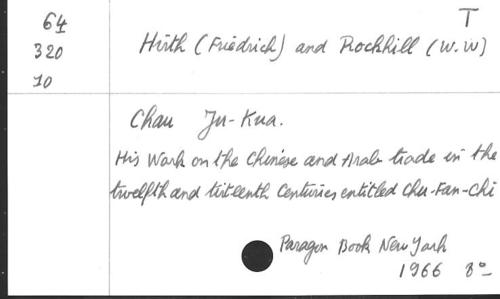 T
64
320
10
Hirth (Friedrich) and Rockhill (W.W)
Chau Ju-Kua.
His Work on the Chinese and Arab trade in the
twelfth and tirteenth Centuries entitled Chu-Fan-Chi
Paragon Book New York
1966 8°